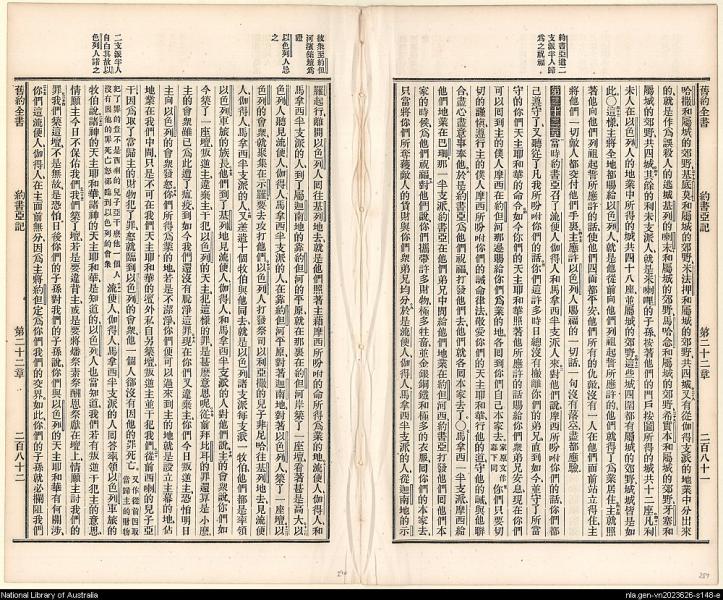 約書亞遣二
支派半人歸
爲之祝福
舊約全書
約書亞記
第二十二章
二百八十一
哈撒和屬城的郊野、基底莫和屬城的郊野、米法押和屬城的郊野、共四城、又有從伽得支派的地業中分出來
的、就是
屬城的郊野、共四城、其餘的利未支派人、就是米喇哩的子孫、按著他們的門戶拈鬮所得的城、共十二座、利
未人在以色列人的地業中所得的城、共四十八座、並屬城的郊野、這些城四圍都有屬城的郊野、城城皆是如
此、○這樣主將全地都賜給以色列人、就是他從前向他們列祖起誓所應許的、他們就得了爲業、居住、主就照
著他向他們列祖起誓所應許的話、使他們四面都平安、他們所有的仇敵、沒有一人在他們面前站立得住、主
將他們一切敵人都交付他們手裏、主應許以色列人賜福的一切話、一句沒有落空、盡都應驗、
第二十二章 當時約書亞召了流便人伽得人和馬拿西半支派人來、對他們說、摩西所吩咐你們的話、你們
己遵守了、又聽從了凡我所吩咐你們的話、你們這許多時日、總沒有撇離你們的弟兄、直到如今、並守了所當
守的你們天主耶和華的命令、如今你們的天主耶和華照著他所應許的話、賜給你們衆弟兄安息、現在你們
可以回到主的僕人摩西在約但河那邊賜給你們爲業的地、各回到你們自己本家去、
切的謹愼遵行主的僕人摩西所吩咐你們的誡命律法、敬愛你們的天主耶和華、行他的道、守他的誡、與他聯
合、盡心盡意事奉他、於是約書亞爲他們祝福、打發他們去、他們就各回本家去了、○馬拿西一半支派、摩西給
他們地業在巴珊、那一半支派、約書亞在他們弟兄中間、給他們地業在約但河西、約書亞打發他們回他們本
家的時候、爲他們祝福、對他們說、你們攜帶許多財物、極多牲畜、並金銀銅鐵和極多的衣服、回你們的本家去、
只當將你們所奪得敵人的貨財、與你們衆弟兄均分、於是流便人伽得人馬拿西半支派的人、從迦南地的示
彼衆至約但
河濱築壇爲
證
以色列人忌
之
二支派半人
自白其故以
色列人諾之
羅起行、離開以色列人、回往基列地去、就是他們照著主藉摩西所吩咐的命、所得爲業的地、流便人伽得人和
馬拿西半支派的人、到了屬迦南地的靠約但的河平原、就在那裏在約但河岸築了一座壇、看著甚是高大、以
色列人聽見流便人伽得人馬拿西半支派的人、在靠約但河平原、對著迦南地、對著以色列人、築了一座壇、以
色列的會衆就聚集在示羅、要去攻打他們、以色列人打發祭司以利亞撒的兒子非尼哈往基列地去、見流便
人伽得人馬拿西半支派的人、又差遣十個牧伯與他同去、就是以色列諸支派、每支派一牧伯、他們都是率領
以色列軍旅的族長、他們到了基列地、見流便人伽得人和馬拿西半支派的人、對他們說、主的會衆說、你們如
今築了一座壇、叛逆主、違棄主、干犯以色列的天主、犯這樣的罪、是甚麼意思呢、從前拜比珥的罪、還算是小麼、
主的會衆雖已爲此遭了瘟疫、到如今我們還沒有脫淨這罪、現在你們又違棄主、你們今日叛逆主、恐怕明日
主向以色列的會衆發怒、你們所得爲業的地、若是不潔淨、你們便可以過來到主的地、就是設立主幕的地、佔
地業在我們中間、只是不可在我們天主耶和華的壇外、私自另築壇、叛逆主、干犯我們、從前西喇的兒子亞
干因爲取了當歸主的財物、犯了罪、忿怒就臨到以色列的會衆、他一個人都沒有因他的罪死亡、
流便人伽得人馬拿西半支派的人同答率領以色列軍旅的
牧伯說、諸神的天主耶和華、諸神的天主耶和華、是知道的、以色列人也當知道、我們若有叛逆干犯主的意思、
情願主今日不保存我們、我們築了壇、若是要違背主、或是要將燔祭素祭酬恩祭獻在壇上、情願主討我們的
罪、我們築這壇不是無故、是恐怕日後你們的子孫對我們的子孫說、你們與以色列的天主耶和華有何關涉、
你們這流便人伽得人、在主面前無分、因爲主將約但定爲你們我們的交界、如此你們的子孫就必攔阻我們
舊約全書
約書亞記
第二十二章
二百八十二
National Library of Australia
nla.gen-vn2023626-s148-e